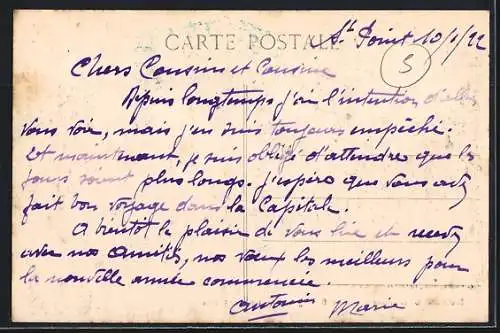 CARTE POSTALE
St Point 10/1/22
5
Chers Cousins et Cousine
Depuis longtemps j'ai l'intention d'aller
vous voir, mais j'en suis toujours empêché.
Et maintenant, je suis obligé d'attendre que les
jours soient plus longs. J'espère que vous avez
fait bon voyage dans la Capitale.
A bientôt le plaisir de vous lire et recevez
avec nos amitiés, nos vœux les meilleurs pour
la nouvelle année commencée.
Antonin Marie